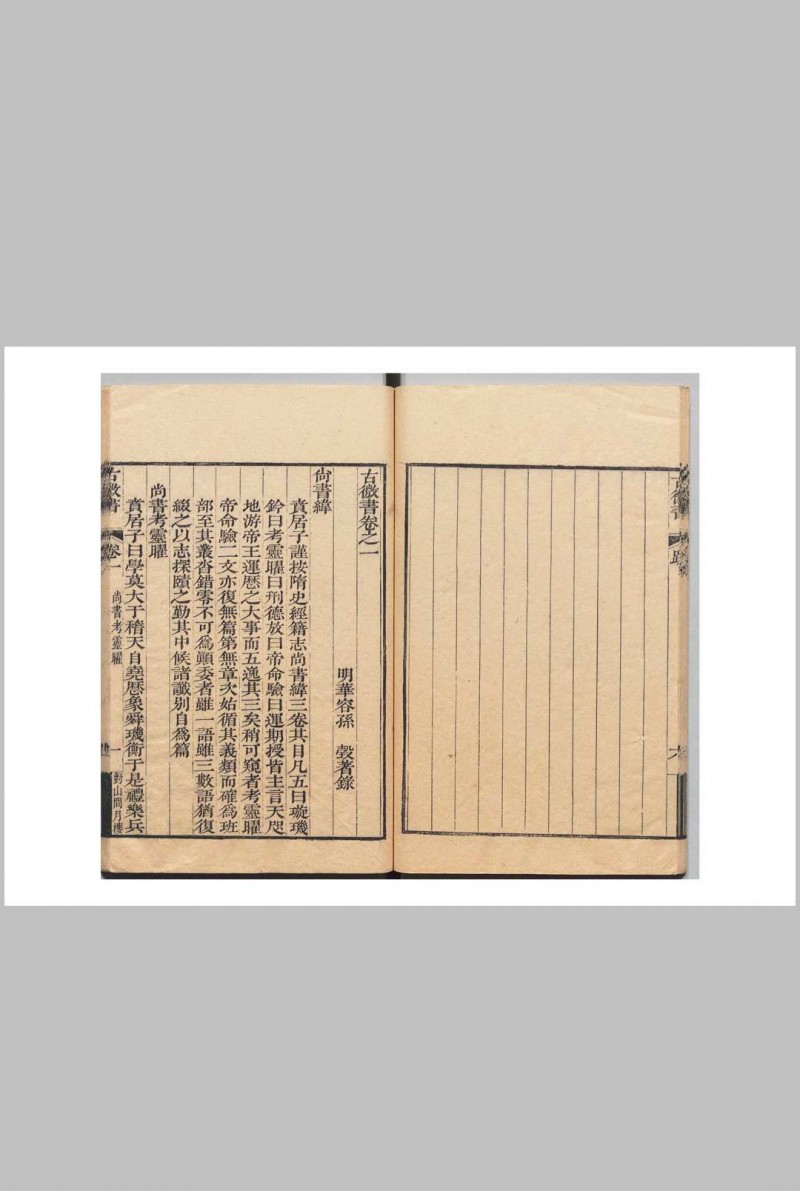 古微書
古微書卷之一
明華容孫 瑴著錄
尚書緯
賁居子謹按隋史經籍志尚書緯三卷其目凡五曰璇璣
鈐曰考靈曜曰刑德放曰帝命驗曰運期授皆主言天咫
地游帝王運曆之大事而五逸其三矣稍可窺者考靈曜
帝命驗二文亦復無篇第無章次姑循其義類而確爲班
部至其叢沓錯零不可爲顚委者雖一語雖三數語猶復
綴之以志探賾之勤其中候諸讖別自爲篇
尚書考靈曜
賁居子曰學莫大于稽天自堯曆象舜璣衡于是禮樂兵
古微書 卷一 尚書考靈曜 一 對山問月樓